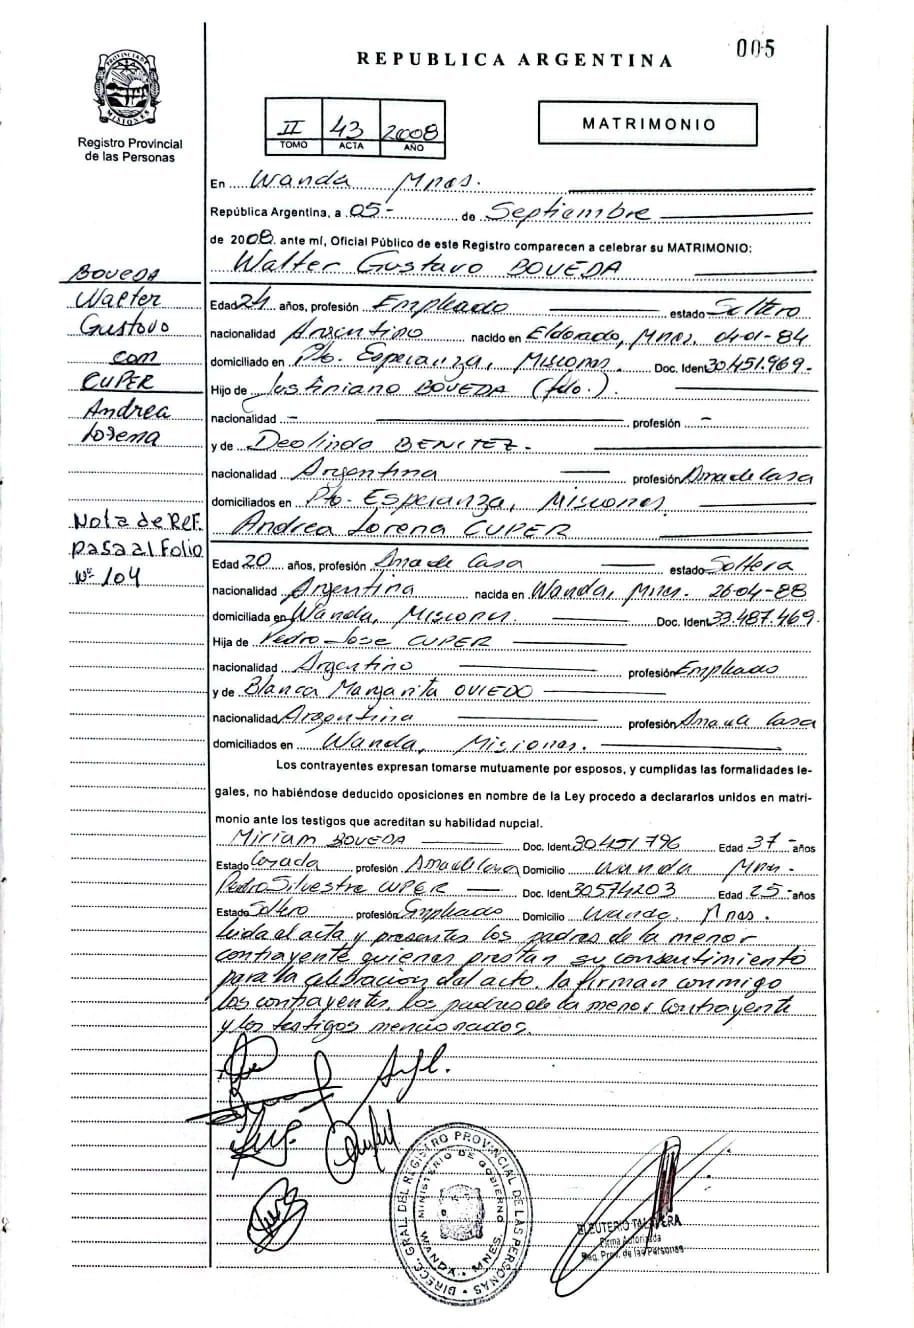 005
REPUBLICA ARGENTINA
PROVINCIA DE MISIONES
Registro Provincial
de las Personas
II 43 2008
TOMO ACTA AÑO
MATRIMONIO
En Wanda Mnes.
República Argentina, a 05- de Septiembre
de 2008. ante mí, Oficial Público de este Registro comparecen a celebrar su MATRIMONIO:
Walter Gustavo BOVEDA
Edad 24 años, profesión Empleado estado Soltero
nacionalidad Argentino nacido en Eldorado, Mnes. 04-01-84
domiciliado en Pto. Esperanza, Misiones. Doc. Ident 30.451.969-
Hijo de Justiniano BOVEDA (fdo.).
nacionalidad - profesión -
y de Deolinda BENITEZ.-
nacionalidad Argentina profesión Ama de Casa
domiciliados en Pto. Esperanza, Misiones.
Andrea Lorena CUPER
Edad 20 años, profesión Ama de Casa estado Soltera
nacionalidad Argentina nacida en Wanda, Mnes. 26-04-88
domiciliada en Wanda, Misiones. Doc. Ident 33.487.469.
Hija de Pedro José CUPER
nacionalidad Argentino profesión Empleado
y de Blanca Margarita OVIEDO
nacionalidad Argentina profesión Ama de Casa
domiciliados en Wanda, Misiones.
Los contrayentes expresan tomarse mutuamente por esposos, y cumplidas las formalidades le-
gales, no habiéndose deducido oposiciones en nombre de la Ley procedo a declararlos unidos en matri-
monio ante los testigos que acreditan su habilidad nupcial.
Miriam BOVEDA Doc. Ident. 30451796 Edad 37- años
Estado Casada profesión Ama de Casa Domicilio Wanda Mnes.
Pedro Silvestre CUPER Doc. Ident. 30574203 Edad 25- años
Estado Soltero profesión Empleado Domicilio Wanda. Mnes.
Leida el acta y presentes los padres de la menor
contrayente quienes prestan su consentimiento
para la celebración del acto. la firman conmigo
los contrayentes, los padres de la menor contrayente
y los testigos mencionados.
BOVEDA
Walter
Gustavo
con
CUPER
Andrea
Lorena
Nota de Ref.
pasa al Folio
Nº 104
DIRECC. GRAL DEL REGISTRO PROVINCIAL DE LAS PERSONAS
MINISTERIO DE GOBIERNO
WANDA - MNES.
ELEUTERIO TALAVERA
Firma Autorizada
Reg. Prov. de las Personas